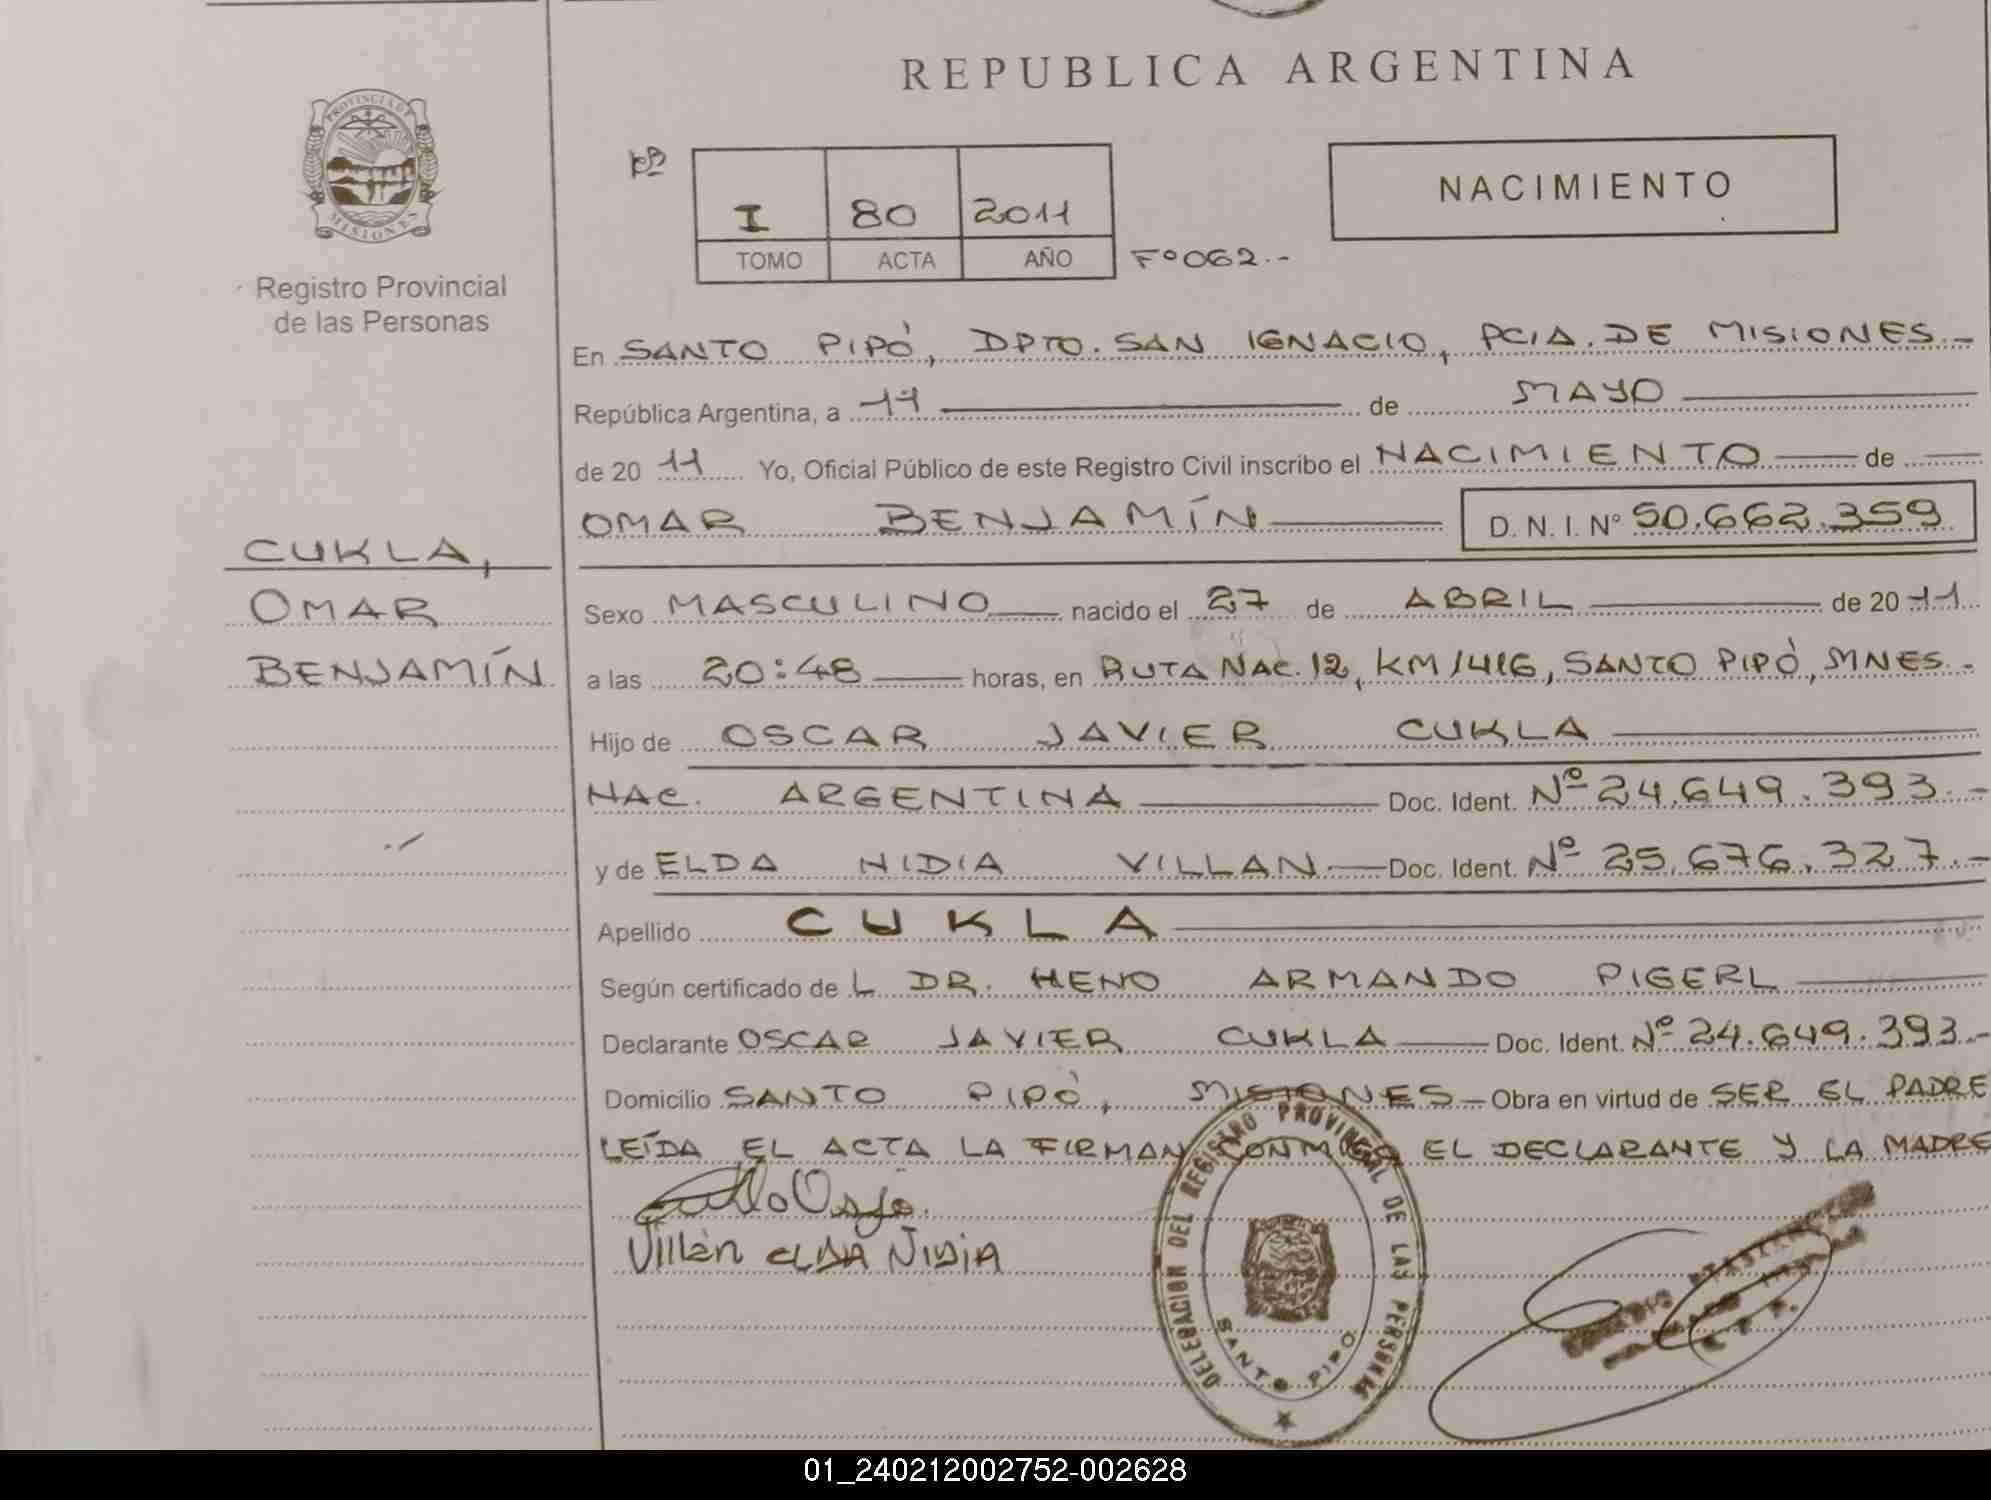 REPUBLICA ARGENTINA
PROVINCIA DE MISIONES
Registro Provincial
de las Personas
I 80 2011
TOMO ACTA AÑO
Fº 062.-
NACIMIENTO
En SANTO PIPÓ, DPTO. SAN IGNACIO, PCIA. DE MISIONES.-
República Argentina, a 17 de MAYO
de 20 11 Yo, Oficial Público de este Registro Civil inscribo el NACIMIENTO de
OMAR BENJAMÍN D. N. I. Nº 50.662.359
CUKLA,
OMAR
BENJAMÍN
Sexo MASCULINO nacido el 27 de ABRIL de 20 11
a las 20:48 horas, en RUTA NAC. 12, KM 1416, SANTO PIPÓ, MNES.-
Hijo de OSCAR JAVIER CUKLA
NAC. ARGENTINA Doc. Ident. Nº 24.649.393.-
y de ELDA NIDIA VILLAN Doc. Ident. Nº 25.676.327.-
Apellido CUKLA
Según certificado de L DR. HENO ARMANDO PIGERL
Declarante OSCAR JAVIER CUKLA Doc. Ident. Nº 24.649.393.-
Domicilio SANTO PIPÓ, MISIONES Obra en virtud de SER EL PADRE
LEÍDA EL ACTA LA FIRMAN CONMIGO EL DECLARANTE Y LA MADRE
Villán ELDA NIDIA
DELEGACION DEL REGISTRO PROVINCIAL DE LAS PERSONAS
SANTO PIPO
01_240212002752-002628